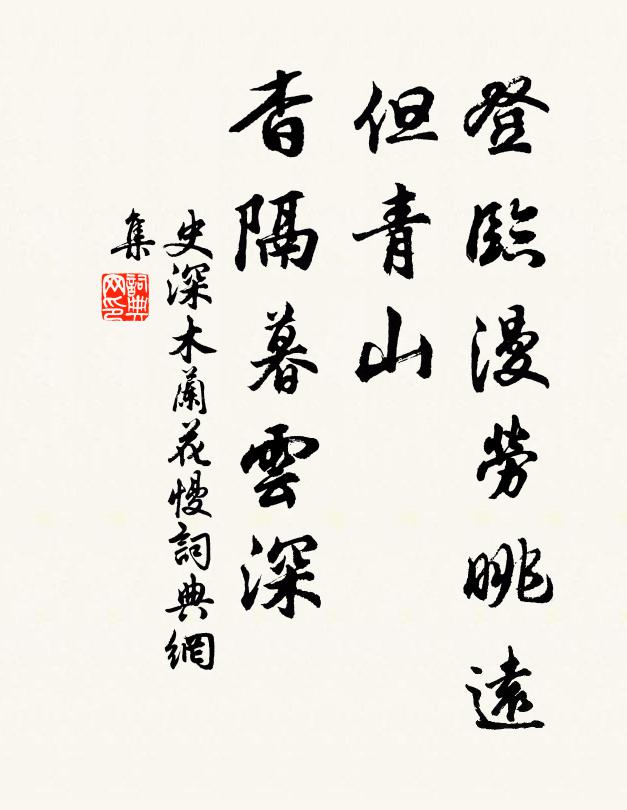 登臨漫勞眺遠
但青山
杳隔暮雲深
史深木蘭花慢詞典網
集
詞典
网印